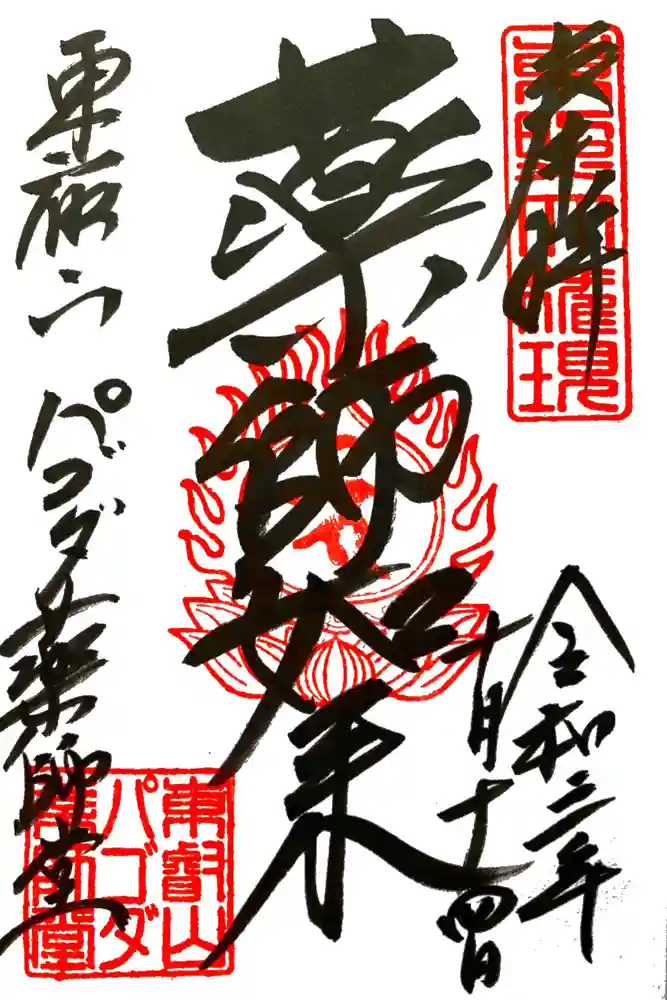 奉拝
東照大権現
令和三年
十月十四日
薬師如来
東叡山 パゴダ薬師堂
東叡山
パゴダ
薬師堂